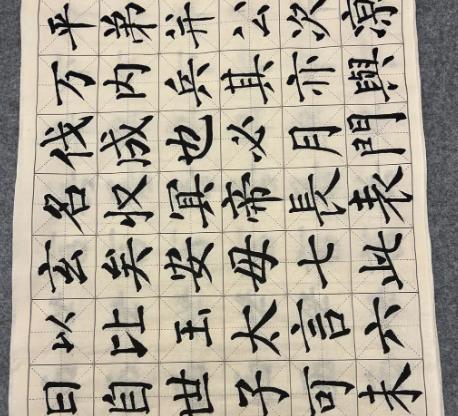 平弟并公次
万内兵其亦與
伐成也必月門
名收冥帝長表
玄矣安母七此
以比玉太言六
日自世子可未